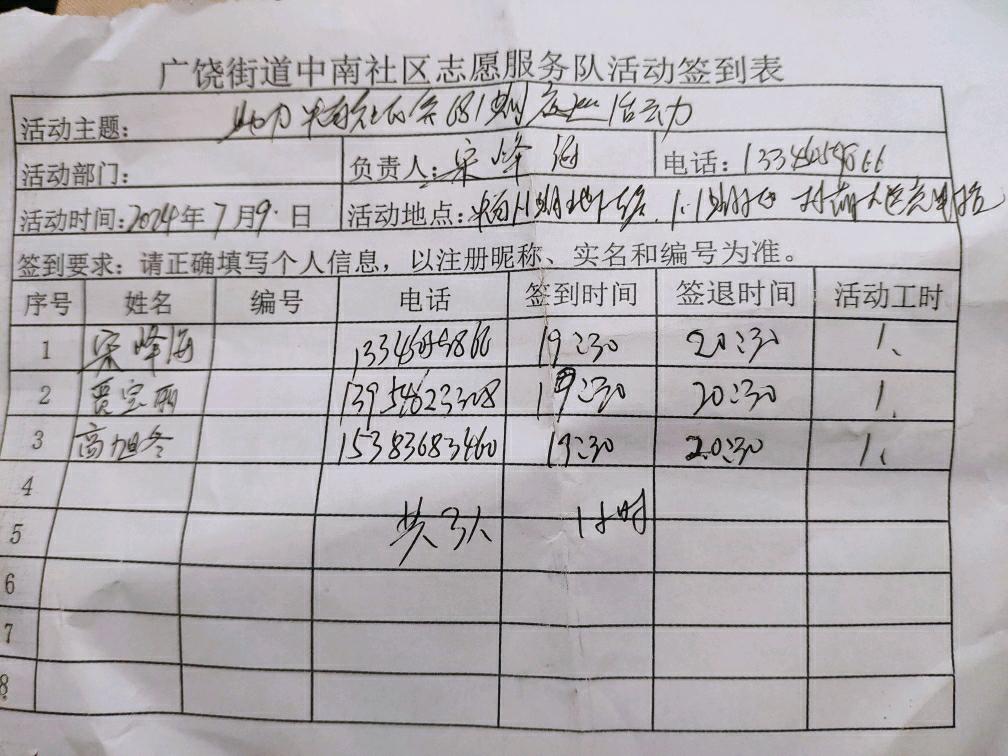 广饶街道中南社区志愿服务队活动签到表
活动主题: 助力
活动部门: 负责人: 宋峰海 电话:
活动时间: 2024年7月9日 活动地点:
签到要求: 请正确填写个人信息, 以注册昵称、实名和编号为准。
序号 姓名 编号 电话 签到时间 签退时间 活动工时
1 宋峰海 19:30 20:30 1、
2 贾宝丽 13954623308 19:30 20:30 1、
3 高旭冬 15383683460 19:30 20:30 1、
4
共3人 1小时
5
6
7
8